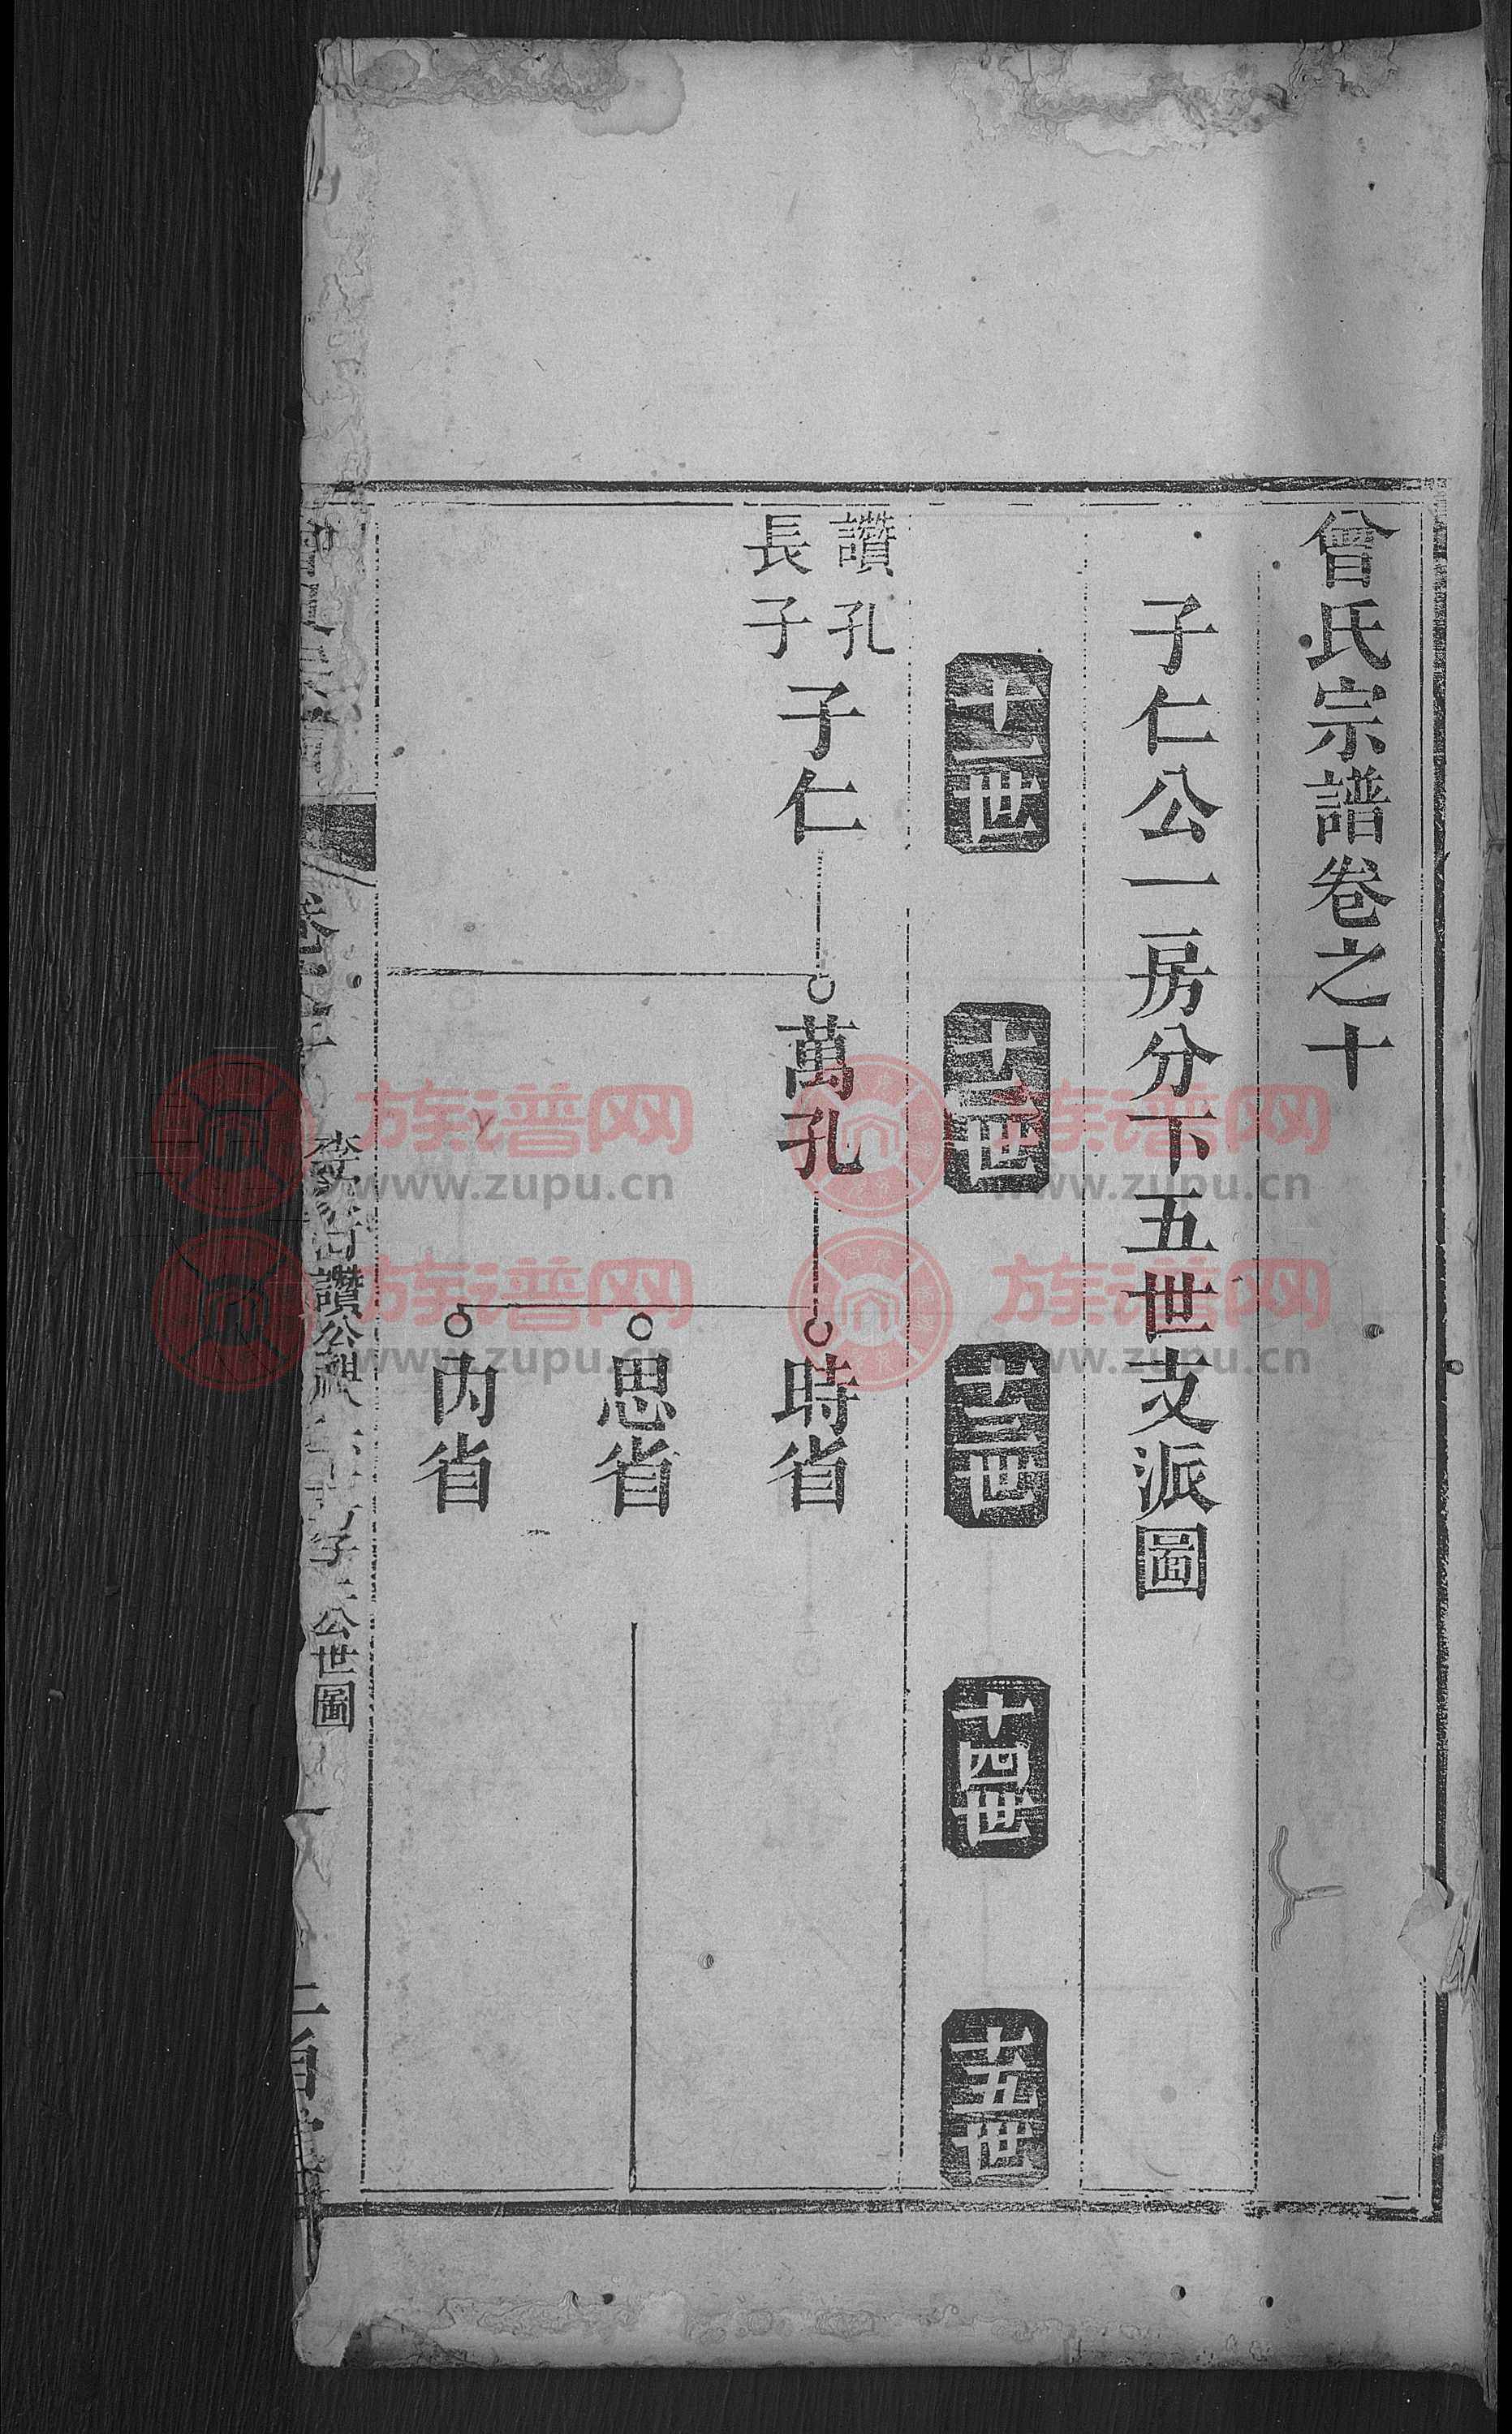 曾氏宗譜卷之十
子仁公一房分下五世支派圖
十一世
十二世
十三世
十四世
十五世
讚孔
長子
子仁
萬孔
時省
思省
內省
讚公
子
公世圖
族谱网
www.zupu.cn
族谱网
www.zupu.cn
族谱网
www.zupu.cn
族谱网
www.zupu.cn